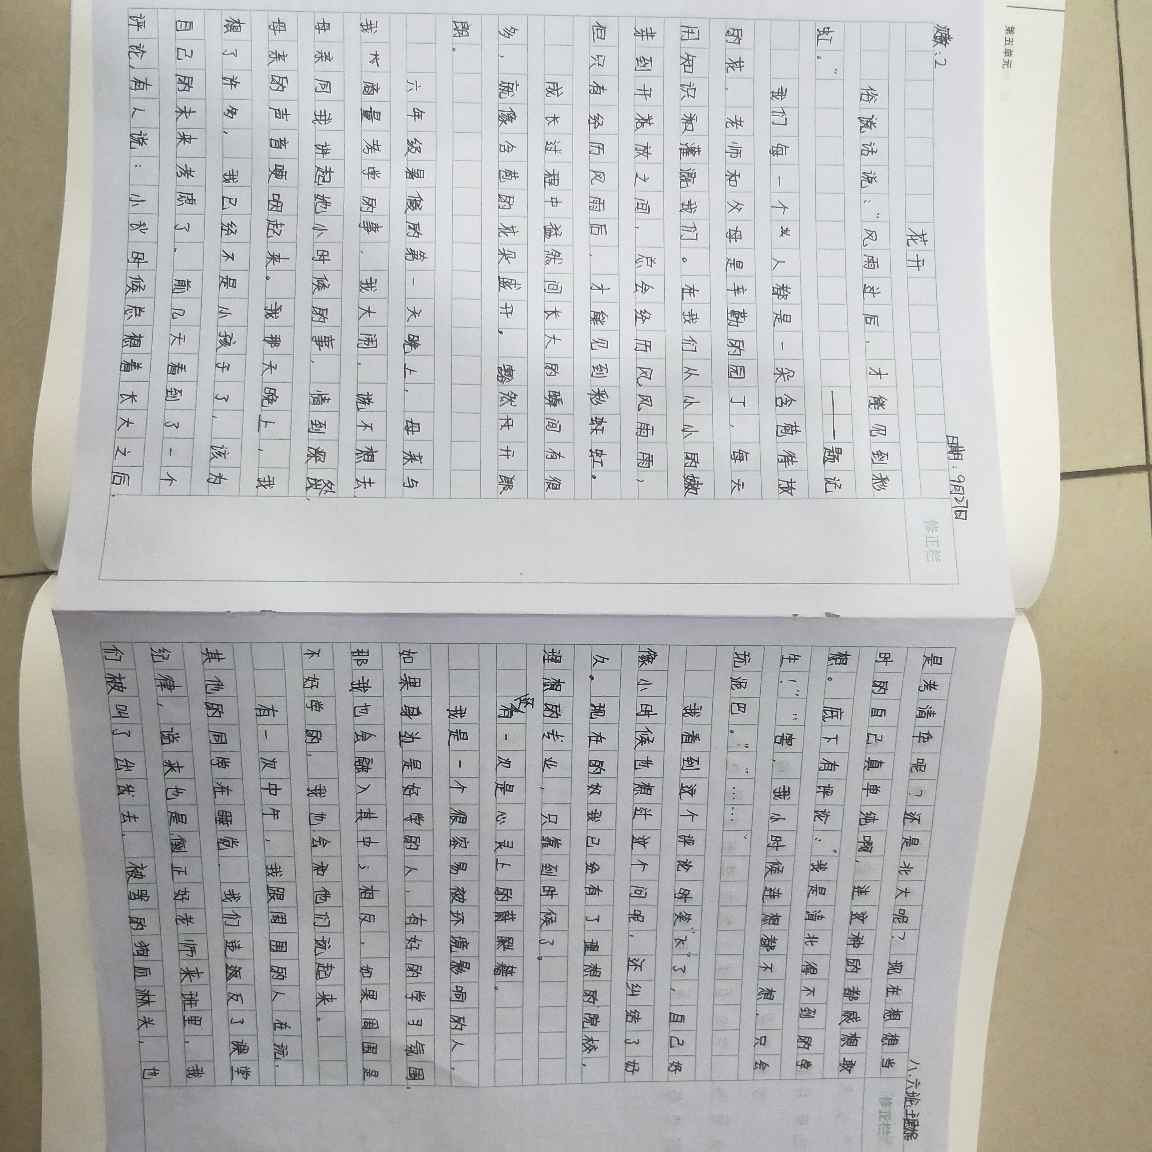 第五单元
次数:2
日期:9月27日
修正栏
花开
俗说话说:“风雨过后,才能见到彩
虹。”
——题记
我们每一个人都是一朵含苞待放
的花,老师和父母是辛勤的园丁,每天
用知识和灌溉我们。在我们从小小的嫩
芽到开花放之间,总会经历风风雨雨,
但只有经历风雨后,才能见到彩虹。
成长过程中猛然间长大的瞬间有很
多,就像含苞的花朵盛开,
朗。
六年级暑假的第一天晚上,母亲与
我商量考学的事,我大闹,说不想去
母亲同我讲起她小时候的事,情到深处
母亲的声音哽咽起来。我那天晚上,我
想了许多,我已经不是小孩子了,该为
自己的未来考虑了。前几天看到了一个
评论,有人说:小我时候总想着长大之后,
八、六班
修正栏
是考清华呢?还是北大呢?现在想想当
时的自己真单纯啊,连这种的都感想敢
想。底下有评论:“我是清北得不到的学
生!”“害,我小时候连想都不想,只会
玩泥巴。”“……”
我看到这个评论时笑了,自己好
像小时候也想过这个问呢,还纠结了好
久。现在的我已经有了理想的院校,
理想的专业,只靠到时候了。
有一次是心灵上的
我是一个很容易被环境影响的人,
如果身边是好学的人,有好的学习氛围,
那我也会融入其中;相反,如果周围是
不好学的,我也会和他们玩起来。
有一次中午,我跟周围的人在玩,
其他的同学在睡觉,我们违反了课堂
纪律,说来也是倒正好老师来班里,我
们被叫了出去,被骂的狗血淋头,也